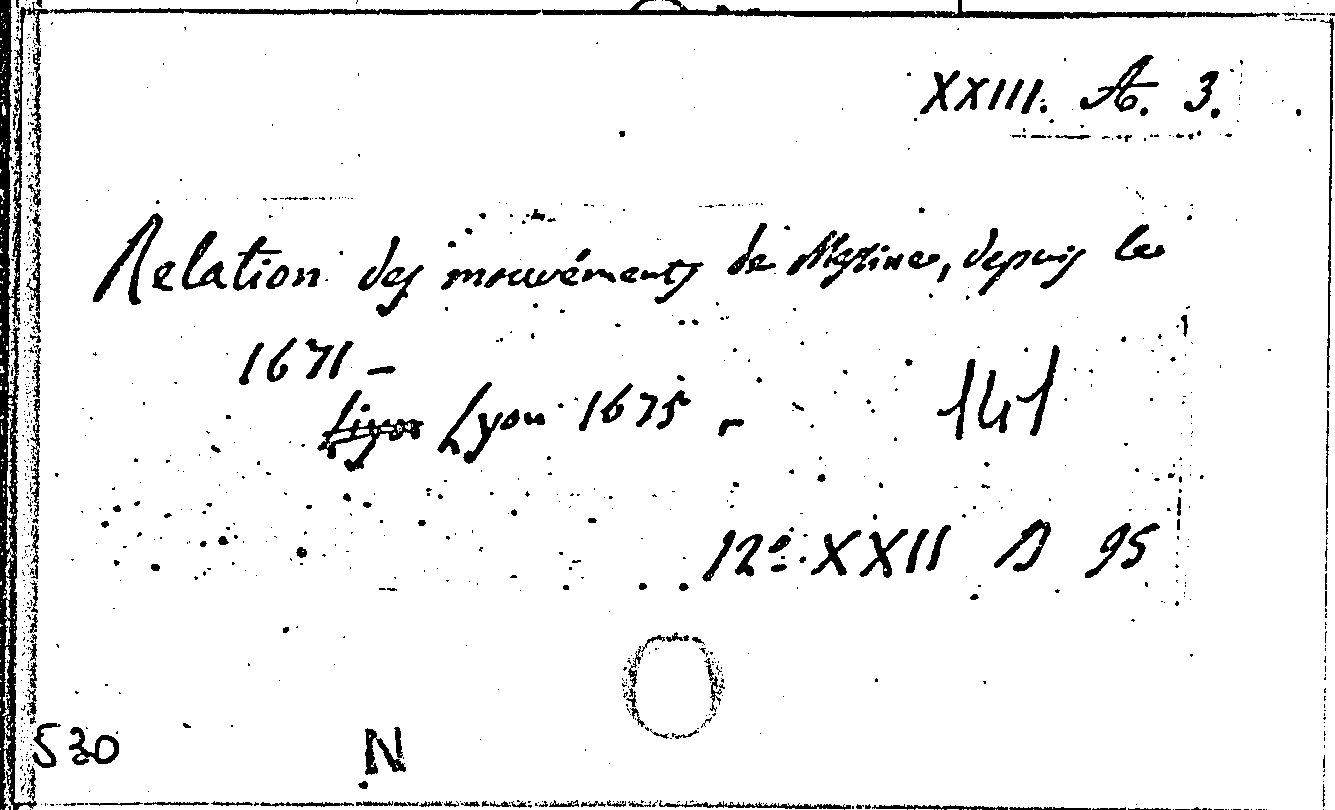 XXIII. A. 3.
Relation des mouvéments de Messine, depuis le
1671 –
Lyon Lyon 1675 –
141
12º XXII D 95
530 N